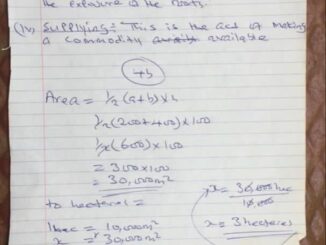 the exposure of the roots.
(iv) Supplying:- This is the act of making
a commodity available
4b
Area = ½(a+b)×h
½(200+400)×100
½×(600)×100
= 300×100
= 30,000m²
to hectares =
1hec = 10,000m²
x = 30,000m²
x = 30,000hec
10,000
x = 3hectares